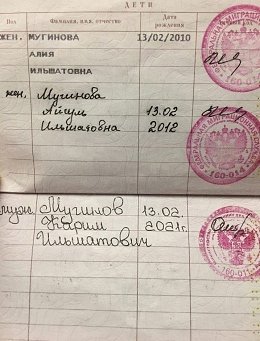 ДЕТИ
Пол Фамилия, имя, отчество Дата рождения
ЖЕН. МУГИНОВА 13/02/2010
АЛИЯ
ИЛЬШАТОВНА
жен. Мугинова
Айгуль 13.02
Ильшатовна 2012
160-014
муж. Мугинов 13.02.
Карим 2021г.
Ильшатович